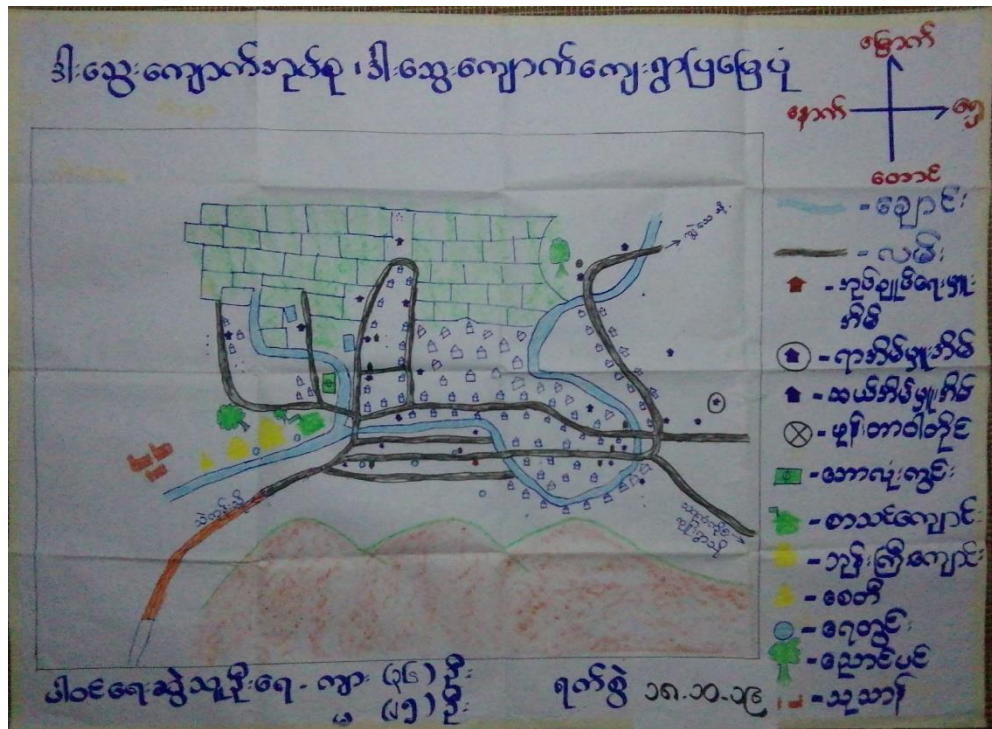 ဒါးသွေးကျောက်အုပ်စု ၊ ဒါးသွေးကျောက်ကျေးရွာပြမြေပုံ
မြောက်
နောက်
ရှေ့
တောင်
- ချောင်း
- လမ်း
- အုပ်ချုပ်ရေးမှူး
အိမ်
- ရာအိမ်မှူးအိမ်
- ဆယ်အိမ်မှူးအိမ်
- ဖုန်းတာဝါတိုင်
- ဘောလုံးကွင်း
- စာသင်ကျောင်း
- ဘုန်းကြီးကျောင်း
- စေတီ
- ရေတွင်း
- ညောင်ပင်
- သုသာန်
ပါဝင်ရေးဆွဲသူဦးရေ - ကျား (၃၆) ဦး
မ (၂၅) ဦး
ရက်စွဲ ၁၈.၁၀.၁၉